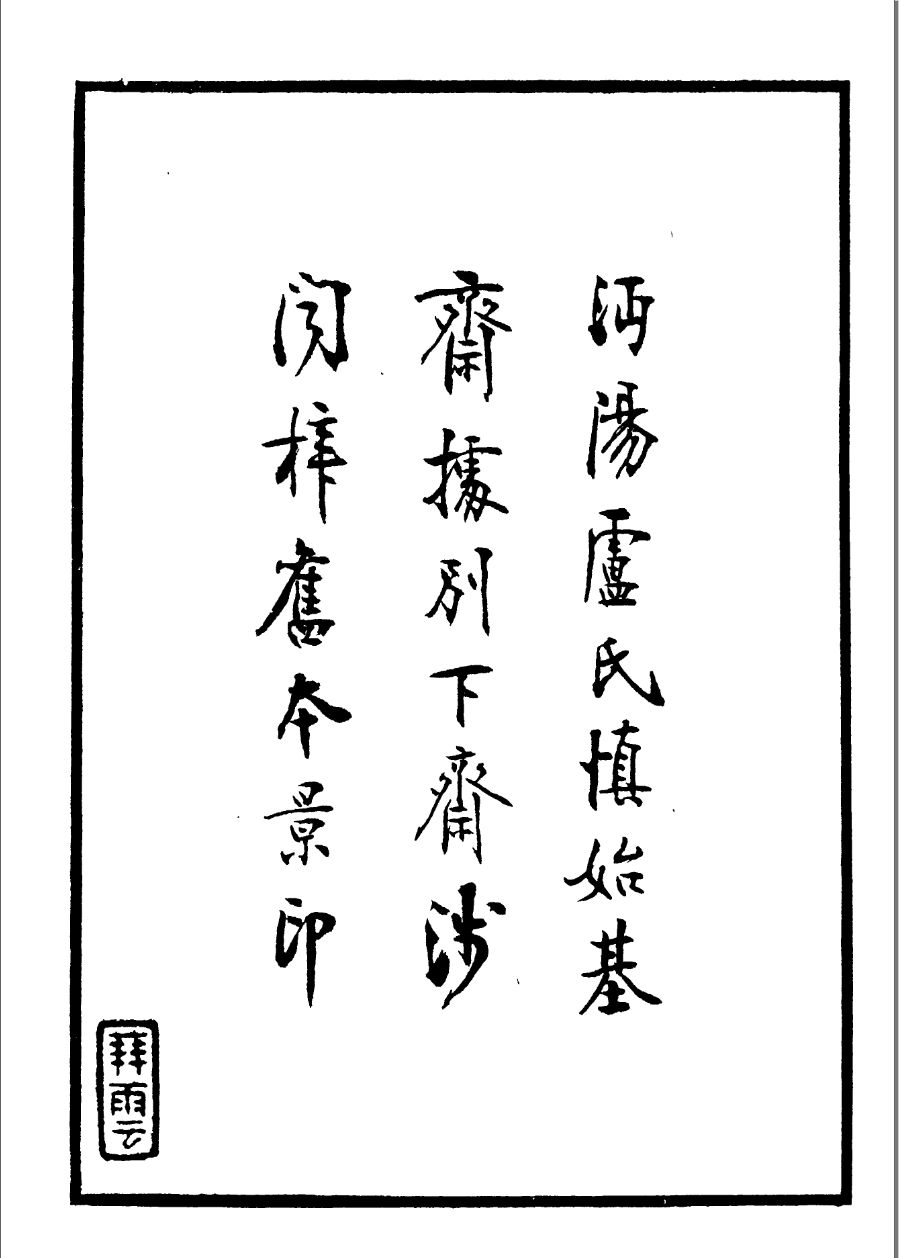 沔陽盧氏慎始基
齋據別下齋涉
聞梓舊本景印